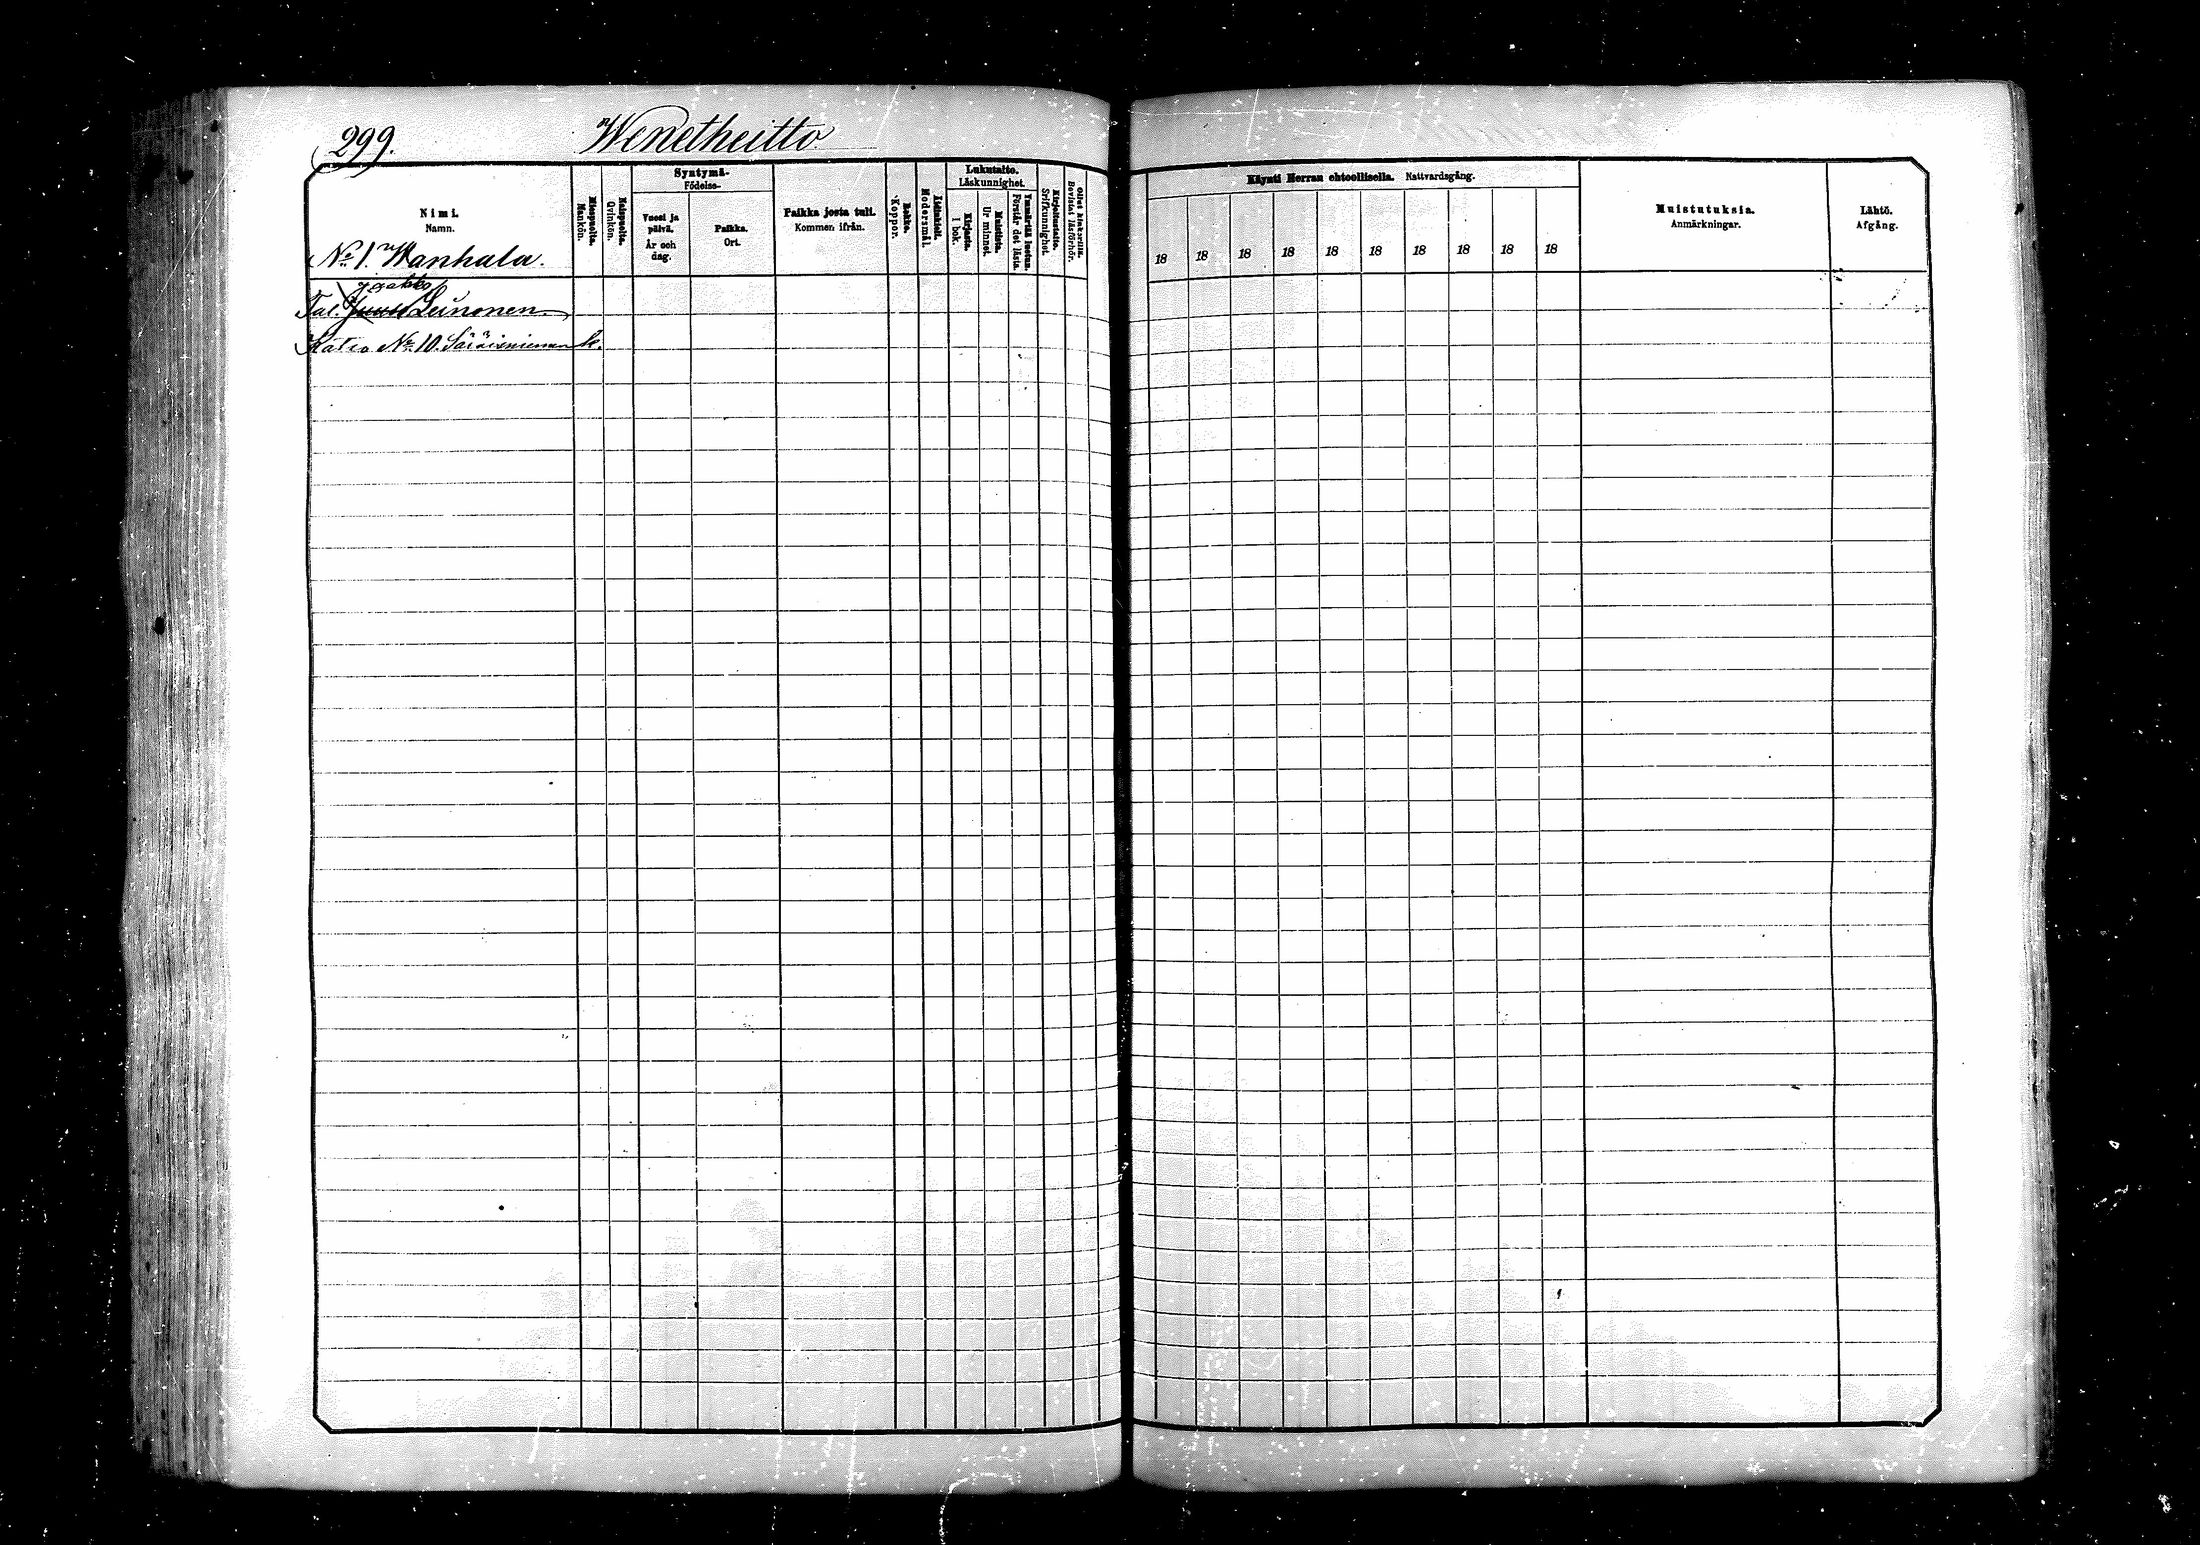 299.
Wenetheitto
Nimi.
Namn.
Miespuolta.
Mankön.
Naispuolta.
Qvinkön.
Syntymä-
Födelse-
Vuosi ja
päivä.
År och
dag.
Paikka.
Ort.
Paikka josta tuli.
Kommen ifrån.
Rokko.
Koppor.
Äidinkieli.
Modersmål.
Lukutaito.
Läskunnighet.
Kirjasta.
I bok.
Muistista.
Ur minnet.
Ymmärtää luetun.
Förstår det lästa.
Kirjoitustaito.
Srifkunnighet.
Ollut kinkerillä.
Bevistat läsförhör.
Käynti Herran ehtoollisella. Nattvardsgång.
18 18 18 18 18 18 18 18 18 18
Muistutuksia.
Anmärkningar.
Lähtö.
Afgång.
No 1. Wanhala.
Jaakko
Tal. Leinonen
Katso No 10. Säräisniemen k.